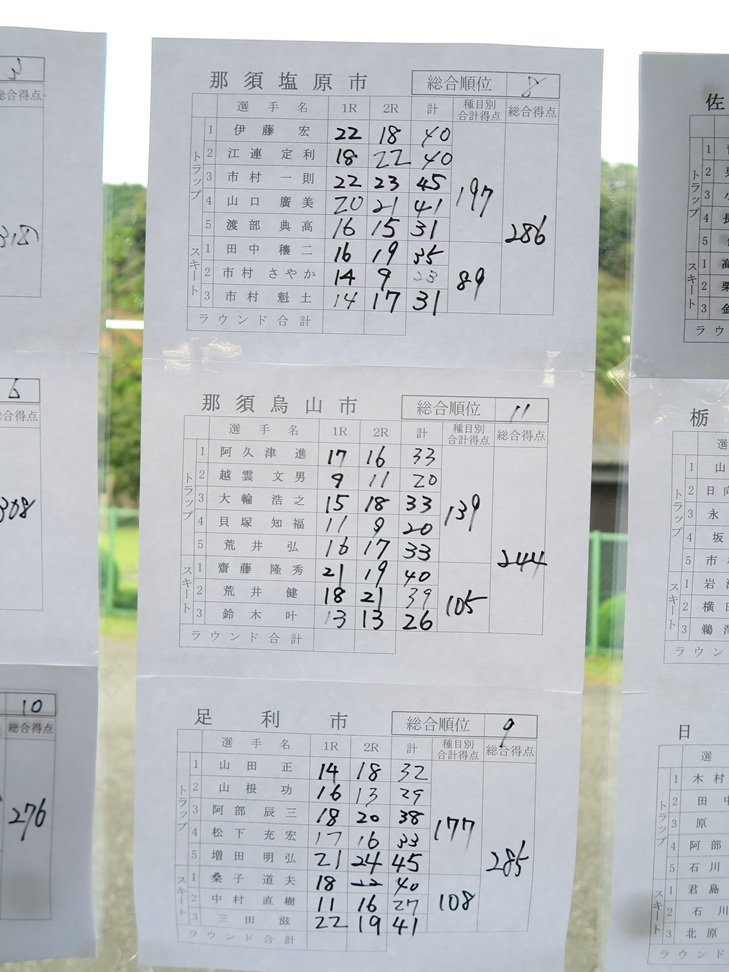 3
総合得点
318
6
総合得点
308
10
総合得点
276
那須塩原市 総合順位 8
選手名 1R 2R 計 種目別合計得点 総合得点
トラップ
1 伊藤 宏 22 18 40
2 江連 定利 18 22 40
3 市村 一則 22 23 45
4 山口 廣美 20 21 41
5 渡部 典高 16 15 31
197
スキート
1 田中 穰二 16 19 35
2 市村 さやか 14 9 23
3 市村 魁士 14 17 31
89
286
ラウンド合計
那須烏山市 総合順位 11
選手名 1R 2R 計 種目別合計得点 総合得点
トラップ
1 阿久津 進 17 16 33
2 越雲 文男 9 11 20
3 大輪 浩之 15 18 33
4 貝塚 知福 11 9 20
5 荒井 弘 16 17 33
139
スキート
1 齋藤 隆秀 21 19 40
2 荒井 健 18 21 39
3 鈴木 叶 13 13 26
105
244
ラウンド合計
足利市 総合順位 9
選手名 1R 2R 計 種目別合計得点 総合得点
トラップ
1 山田 正 14 18 32
2 山根 功 16 13 29
3 阿部 辰三 18 20 38
4 松下 充宏 17 16 33
5 増田 明弘 21 24 45
177
スキート
1 桑子 道夫 18 22 40
2 中村 直樹 11 16 27
3 三田 滋 22 19 41
108
285
ラウンド合計
佐
トラップ
1
2
3 小
4 長
5
スキート
1 高
2 栗
3 金
ラウ
栃
選
トラップ
1 山
2 日向
3 永
4 坂
5 市村
スキート
1 岩
2 横田
3 鵜
ラウン
日
選
トラップ
1 木村
2 田中
3 原
4 阿部
5 石川
スキート
1 君島
2 石川
3 北原
ラウンド